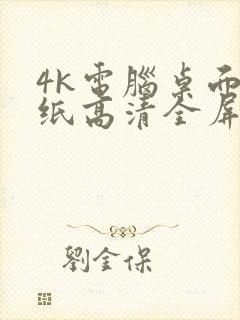 4K電腦桌面
纸高清全屏
劉金保